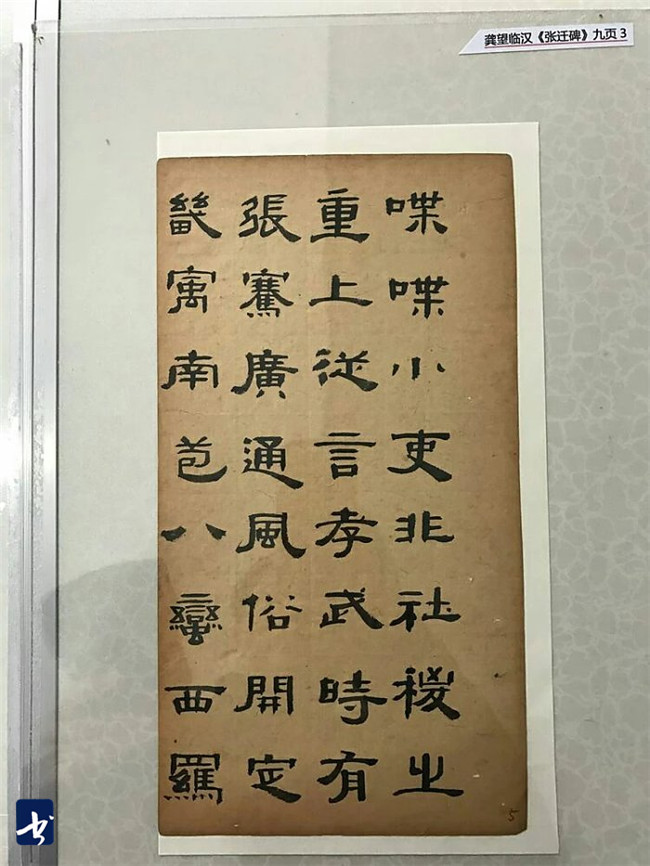 龚望临汉《张迁碑》九页 3
喋喋小吏非社稷之
重上從言孝武時有
張騫廣通風俗開定
畿寓南苞八蠻西羈
5